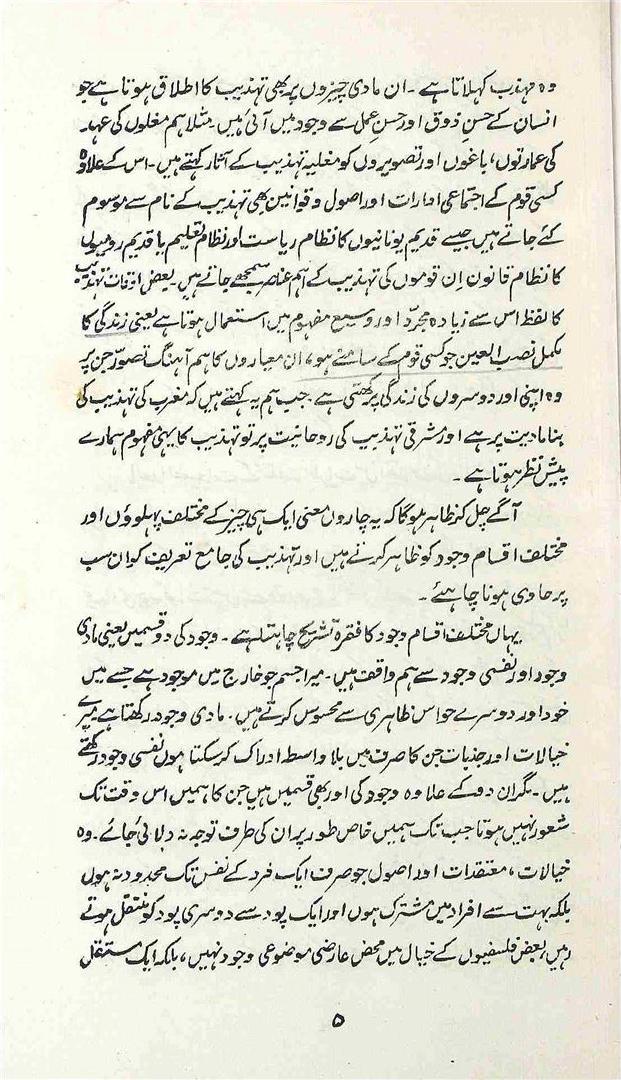 وہ مہذب کہلاتا ہے ۔ ان مادی چیزوں پر بھی تہذیب کا اطلاق ہوتا ہے جو
انسان کے حسنِ ذوق اور حسنِ عمل سے وجود میں آئی ہیں ۔ مثلا ہم مغلوں کی عہد
کی عمارتوں، باغوں اور تصویروں کو مغلیہ تہذیب کے آثار کہتے ہیں ۔ اس کے علاوہ
کسی قوم کے اجتماعی ادارات اور اصول و قوانین بھی تہذیب کے نام سے موسوم
کئے جاتے ہیں جیسے قدیم یونانیوں کا نظام ریاست اور نظام تعلیم یا قدیم رومیوں
کا نظام قانون اِن قوموں کی تہذیب کے اہم عناصر سمجھے جاتے ہیں ۔ بعض اوقات تہذیب
کا لفظ اس سے زیادہ مجرّد اور وسیع مفہوم میں استعمال ہوتا ہے یعنی زندگی کا
مکمل نصب العین جو کسی قوم کے سامنے ہو، ان معیاروں کا ہم آہنگ تصوّر جن پر
وہ اپنی اور دوسروں کی زندگی پرکھتی ہے ۔ جب ہم یہ کہتے ہیں کہ مغرب کی تہذیب کی
بنا مادیت پر ہے اور مشرقی تہذیب کی روحانیت پر تو تہذیب کا یہی مفہوم ہمارے
پیش نظر ہوتا ہے ۔
آگے چل کر ظاہر ہوگا کہ یہ چاروں معنی ایک ہی چیز کے مختلف پہلوؤں اور
مختلف اقسام وجود کو ظاہر کرتے ہیں اور تہذیب کی جامع تعریف کو ان سب
پر حاوی ہونا چاہئے ۔
یہاں مختلف اقسام وجود کا فقرہ تشریح چاہتا ہے ۔ وجود کی دو قسمیں یعنی مادی
وجود اور نفسی وجود سے ہم واقف ہیں ۔ میرا جسم جو خارج میں موجود ہے جسے میں
خود اور دوسرے حواس ظاہری سے محسوس کرتے ہیں ۔ مادی وجود رکھتا ہے میرے
خیالات اور جذبات جن کا صرف میں بلا واسطہ ادراک کر سکتا ہوں نفسی وجود رکھتے
ہیں ۔ مگر ان دو کے علاوہ وجود کی اور بھی قسمیں ہیں جن کا ہمیں اس وقت تک
شعور نہیں ہوتا جب تک ہمیں خاص طور پر ان کی طرف توجہ نہ دلائی جائے ۔ وہ
خیالات ، معتقدات اور اصول جو صرف ایک فرد کے نفس تک محدود نہ ہوں
بلکہ بہت سے افراد میں مشترک ہوں اور ایک پود سے دوسری پود کو منتقل ہوتے
رہیں بعض فلسفیوں کے خیال میں محض عارضی موضوعی وجود نہیں ، بلکہ ایک مستقل
۵